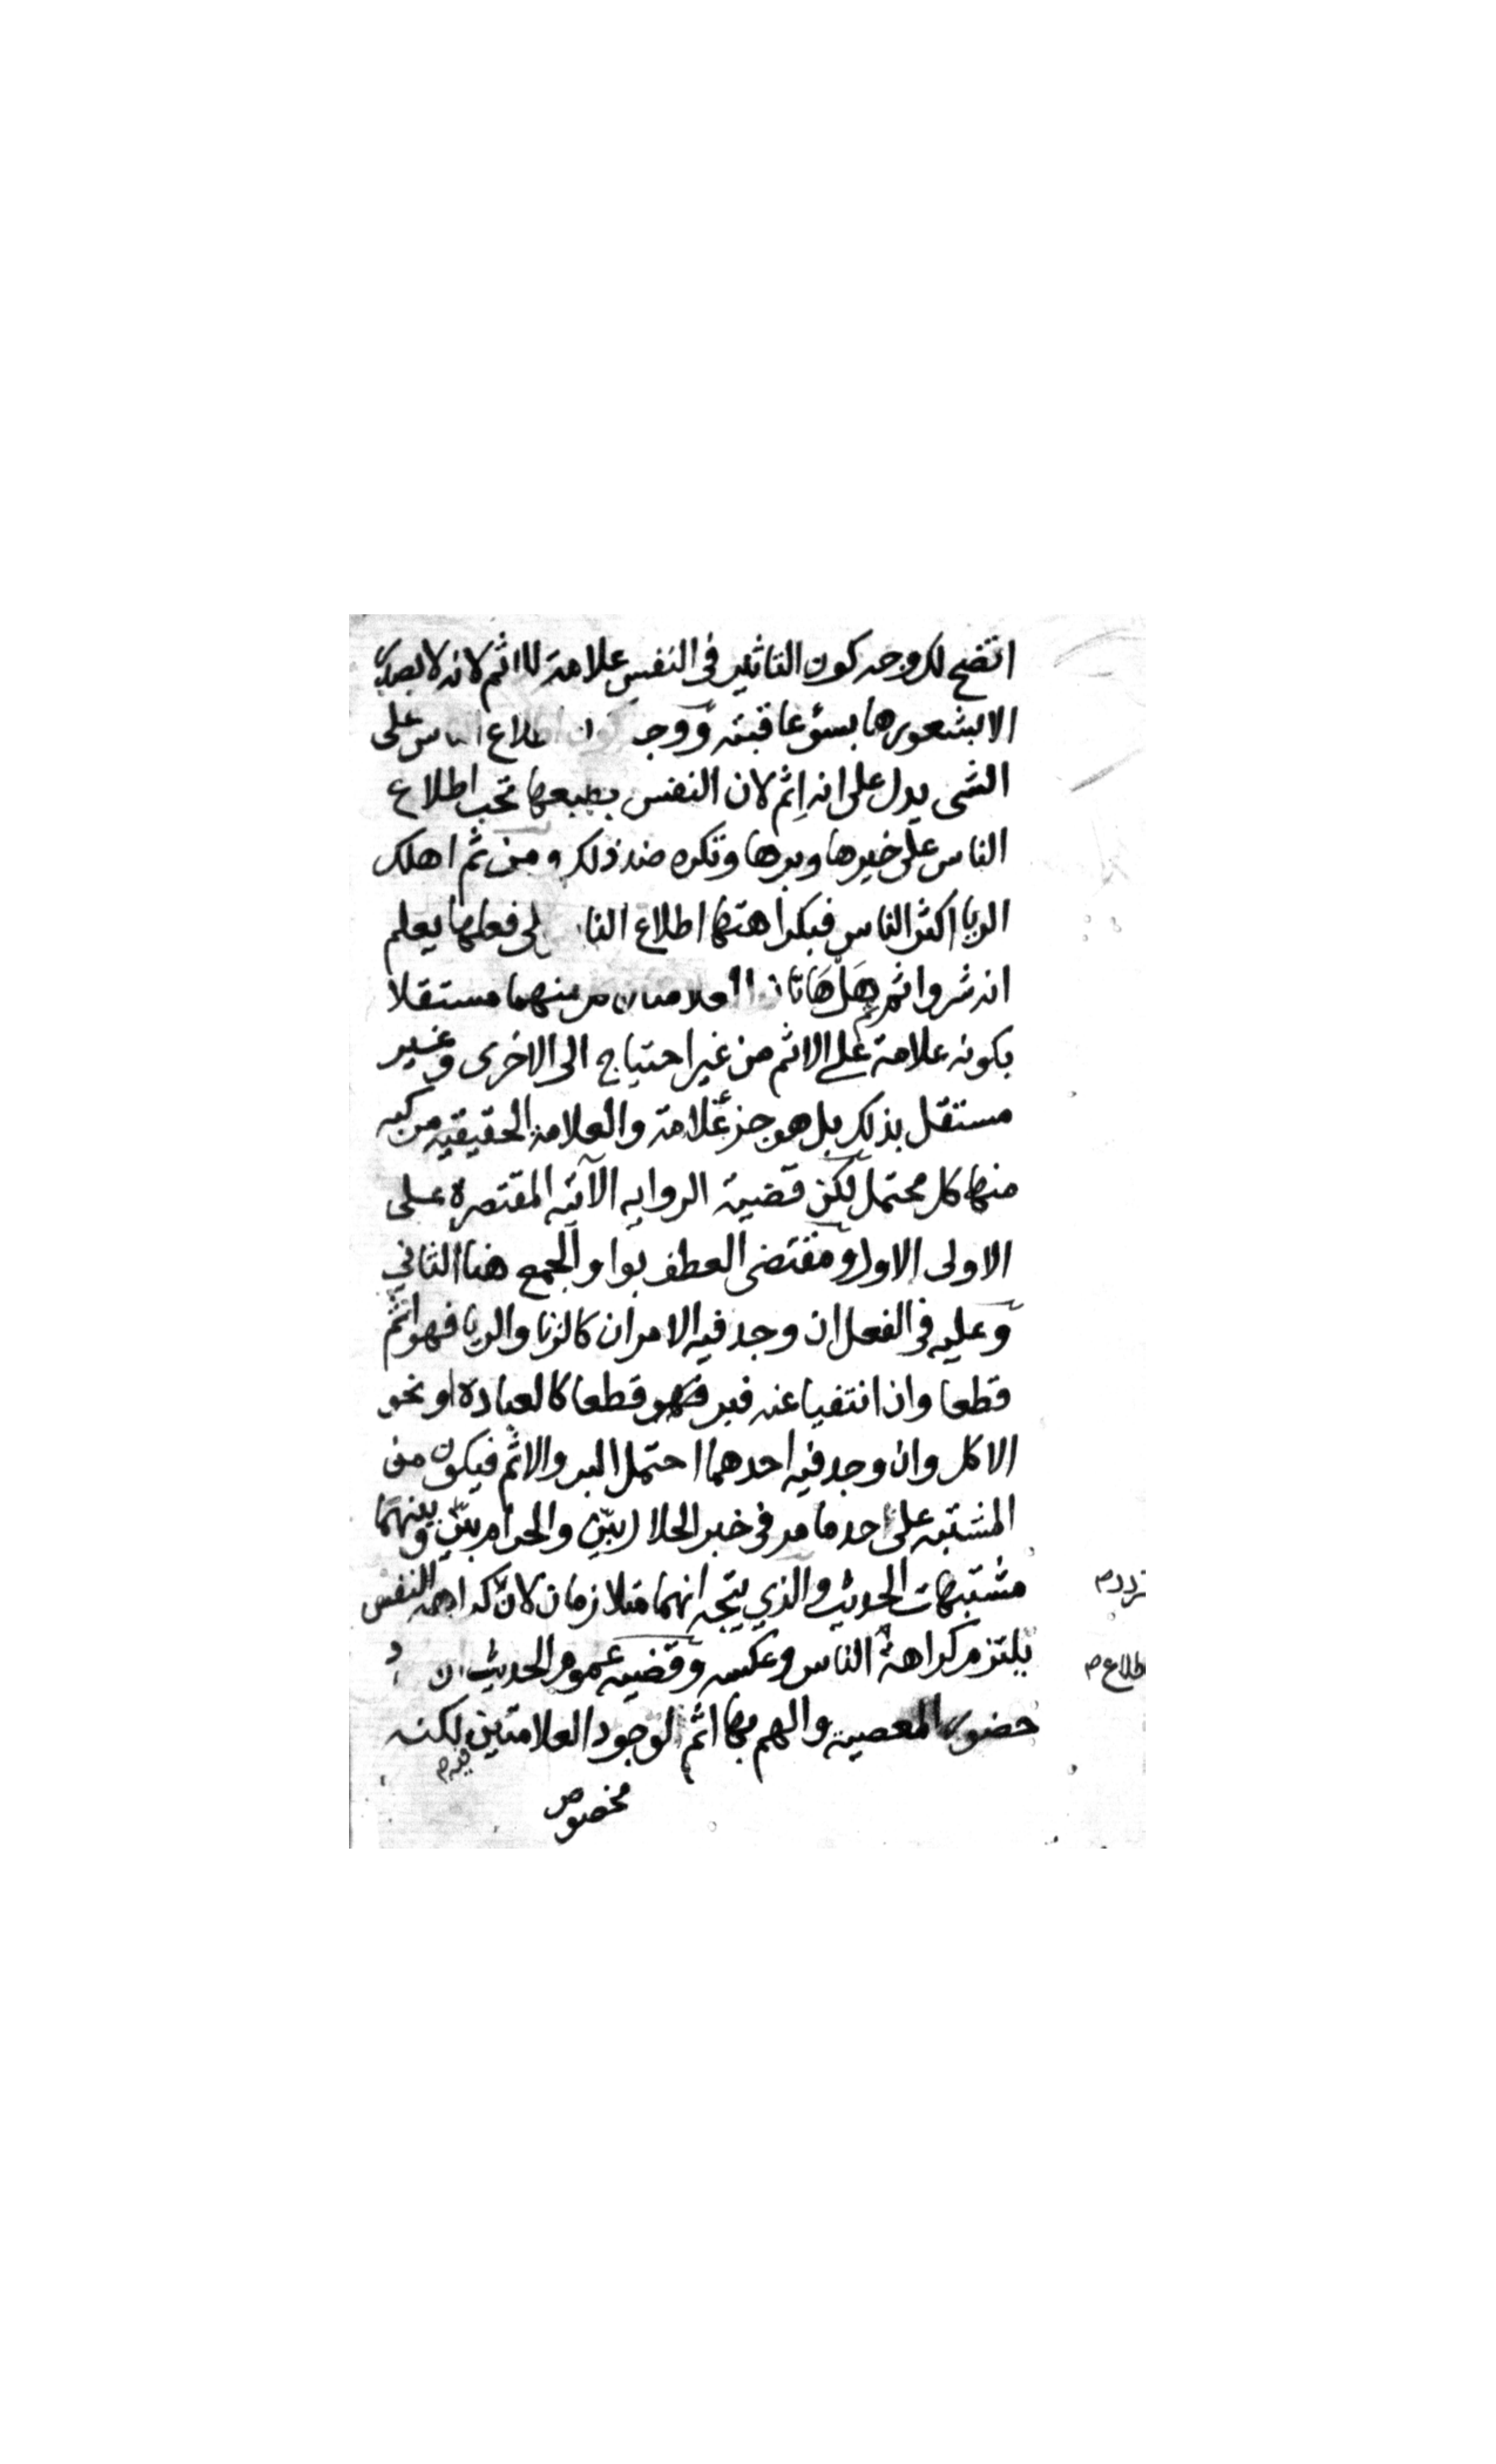 اتضح لك وجه كون التاثير في النفس علامة للاثم لانه لا يصدر
الا بشعورها بسوء عاقبته ووجه كون اطلاع الناس على
الشي يدل على انه اثم لان النفس بطبعها تحب اطلاع
الناس على خيرها وبرها وتكره ضد ذلك ومن ثم اهلك
الريا اكثر الناس فبكراهتها اطلاع النا لى فعلها يعلم
انه شر واثم ثم هل هاتان العلامتان منهما مستقلا
بكونه علامة على الاثم من غير احتياج الى الاخرى وغير
مستقل بذلك بل هو جزء علامة والعلامة الحقيقيه مركبه
منها كل محتمل لكن قضية الروايه الآتيه المقتصرة على
الاولى الاول ومقتضى العطف بواو الجمع هنا الثاني
وعليه في الفعل ان وجد فيه الامران كالزنا والريا فهو اثم
قطعا وان انتفيا عنه فبر قطعا كالعبادة او نحو
الاكل وان وجد فيه احدهما احتمل البر والاثم فيكون من
المشتبه على احد ما مر في خبر الحلال بيّن والحرام بيّن وبينهما
مشتبهات الحديث والذي يتجه انهما متلازمان لان كراهة النفس
يلتزم كراهة الناس وعكسه وقضيه عموم الحديث ان
حضور المعصية والهم بها اثم لوجود العلامتين لكنه
فيه م
مخصوص
تردد م
طلاع م